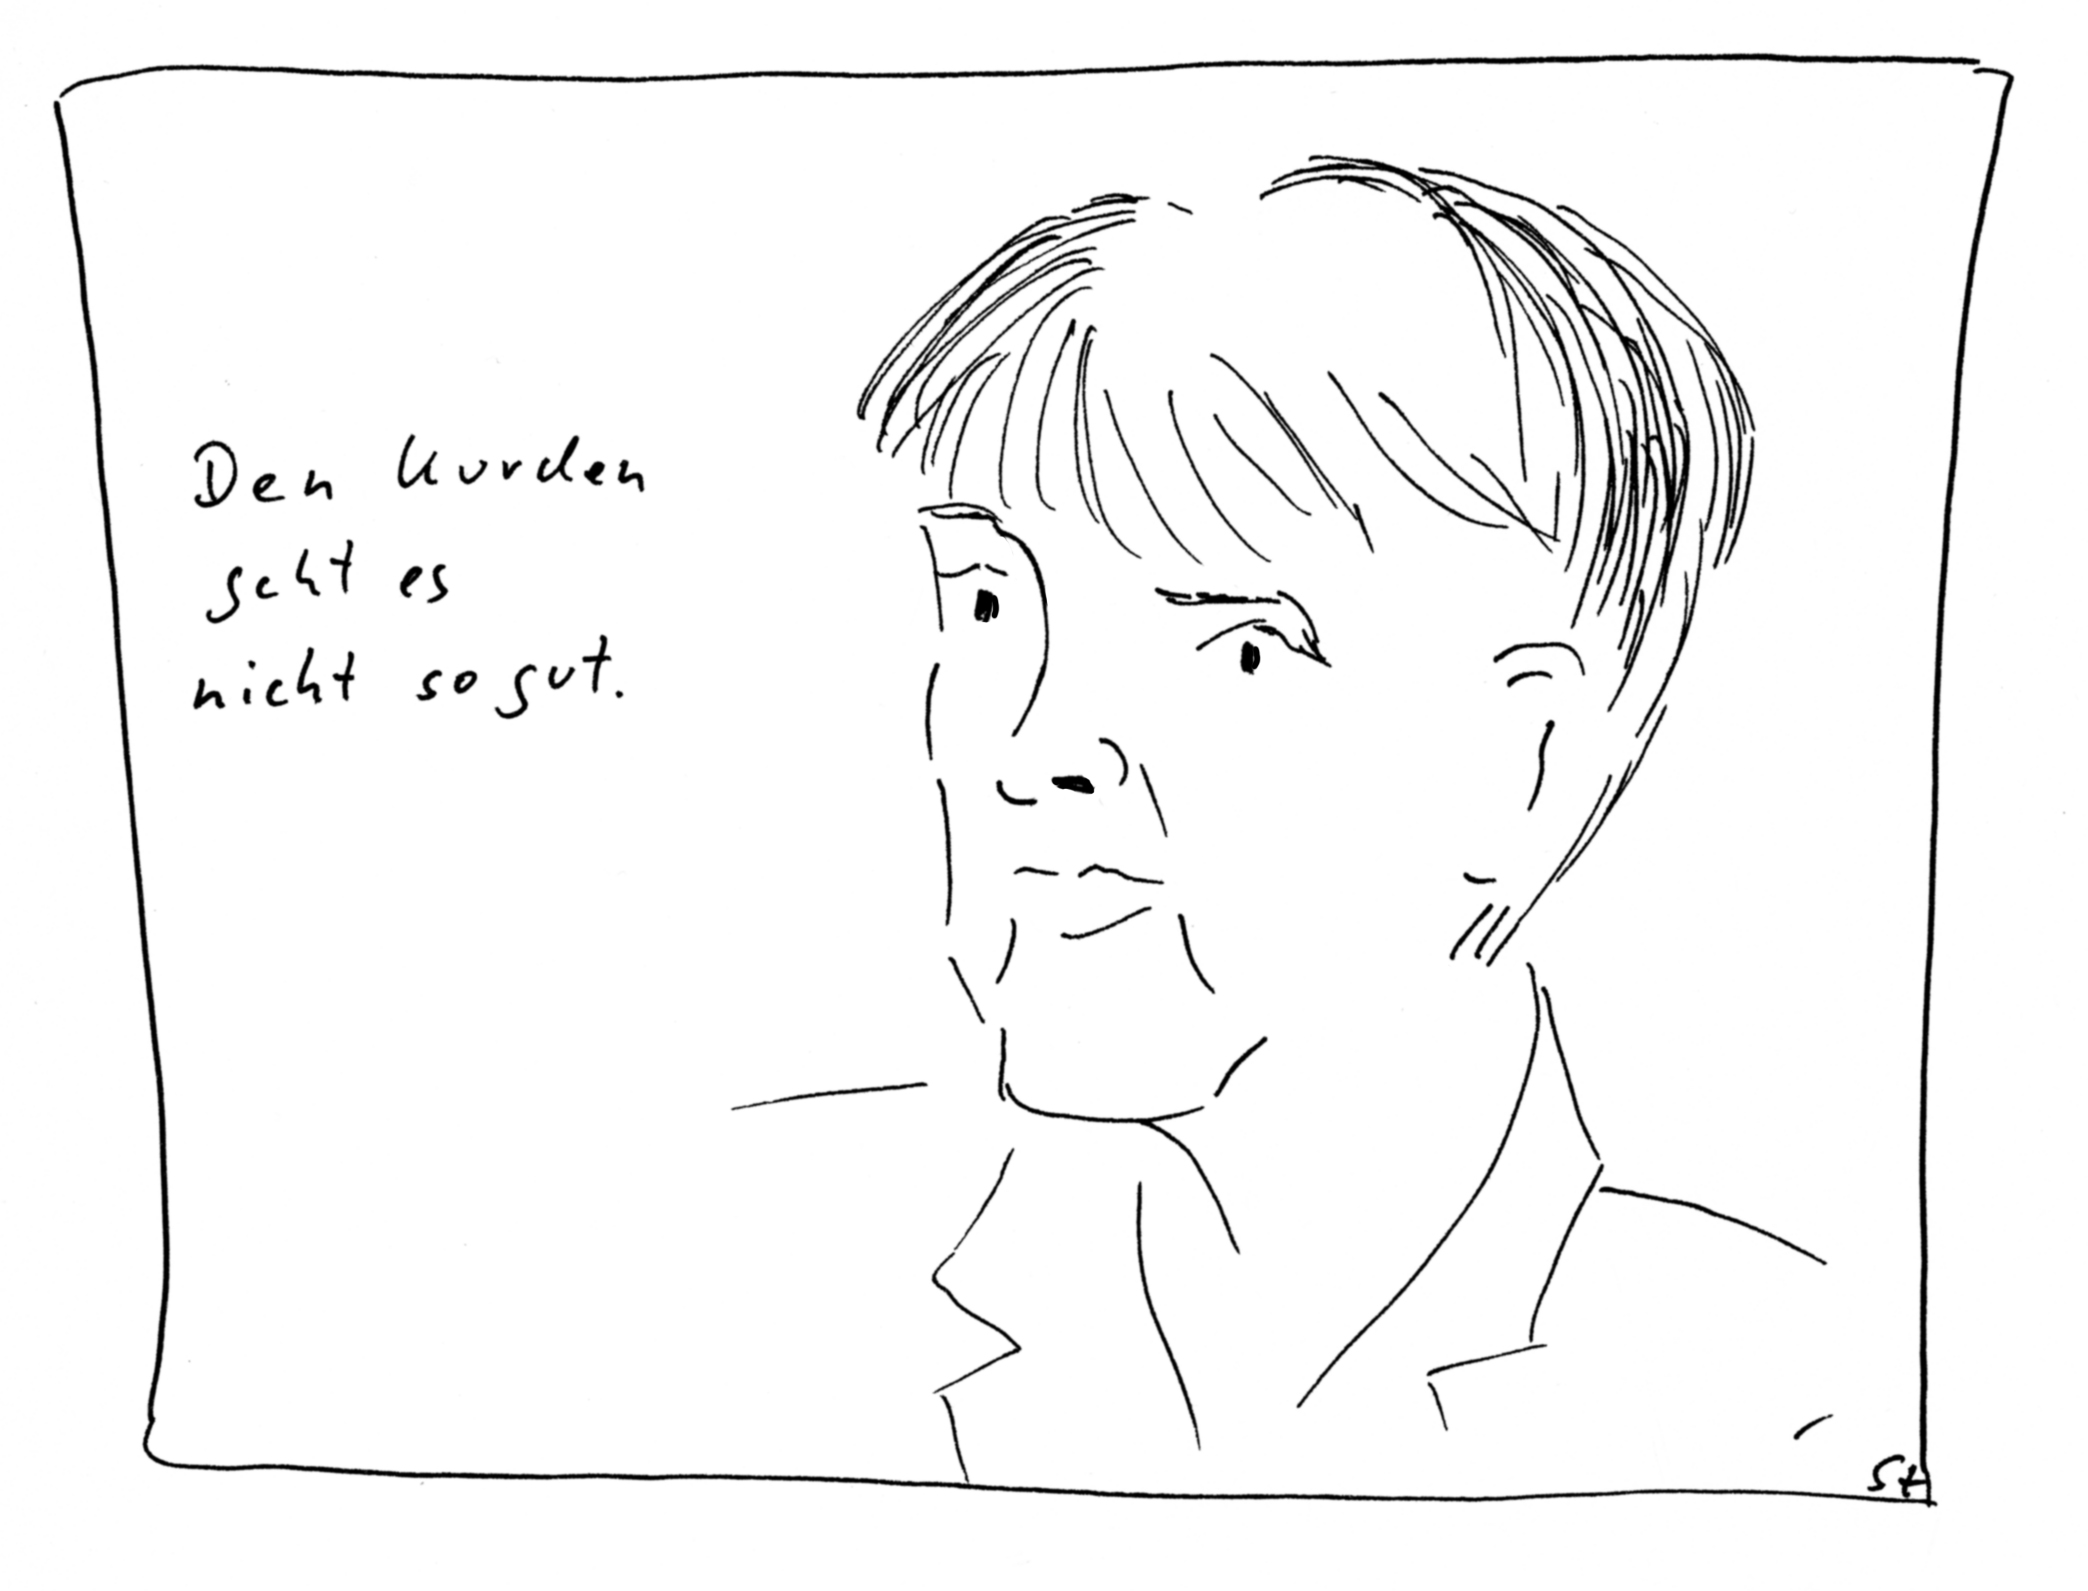 Den Kurden
geht es
nicht so gut.
St